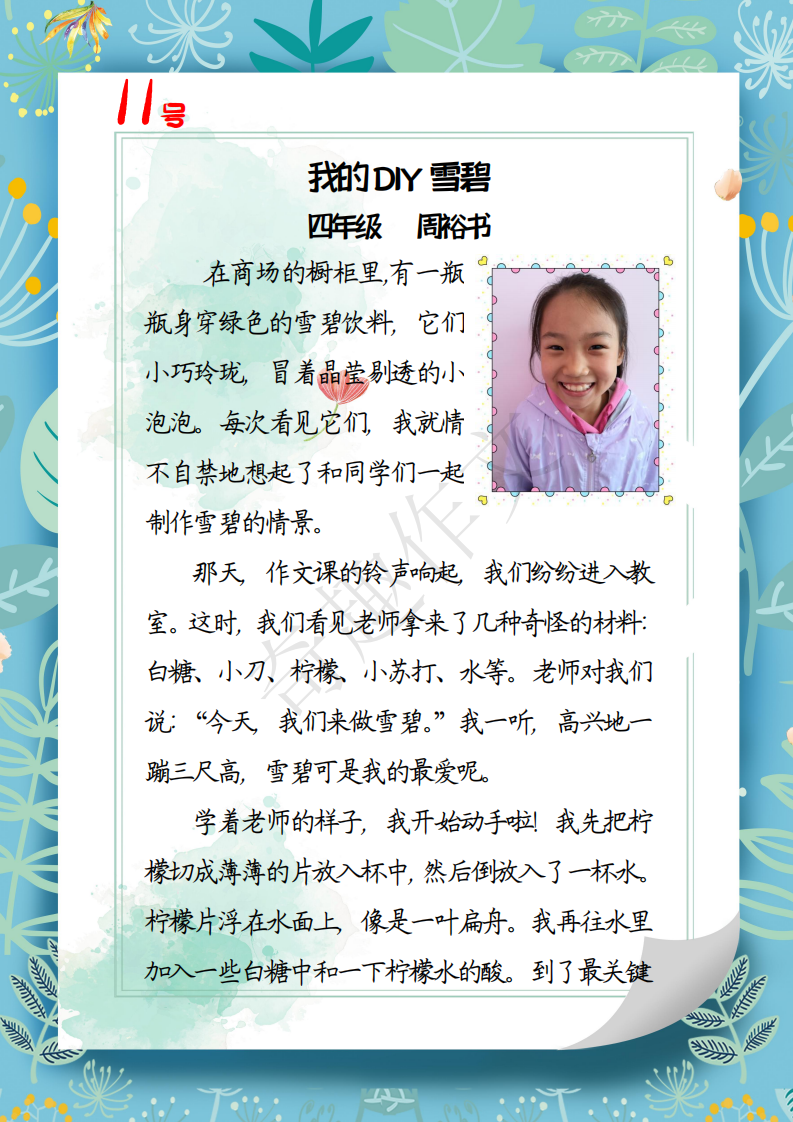 11号
我的DIY雪碧
四年级 周裕书
在商场的橱柜里,有一瓶
瓶身穿绿色的雪碧饮料，它们
小巧玲珑，冒着晶莹剔透的小
泡泡。每次看见它们，我就情
不自禁地想起了和同学们一起
制作雪碧的情景。
那天，作文课的铃声响起，我们纷纷进入教
室。这时，我们看见老师拿来了几种奇怪的材料：
白糖、小刀、柠檬、小苏打、水等。老师对我们
说：“今天，我们来做雪碧。”我一听，高兴地一
蹦三尺高，雪碧可是我的最爱呢。
学着老师的样子，我开始动手啦！我先把柠
檬切成薄薄的片放入杯中，然后倒放入了一杯水。
柠檬片浮在水面上，像是一叶扁舟。我再往水里
加入一些白糖中和一下柠檬水的酸。到了最关键
奇趣作文